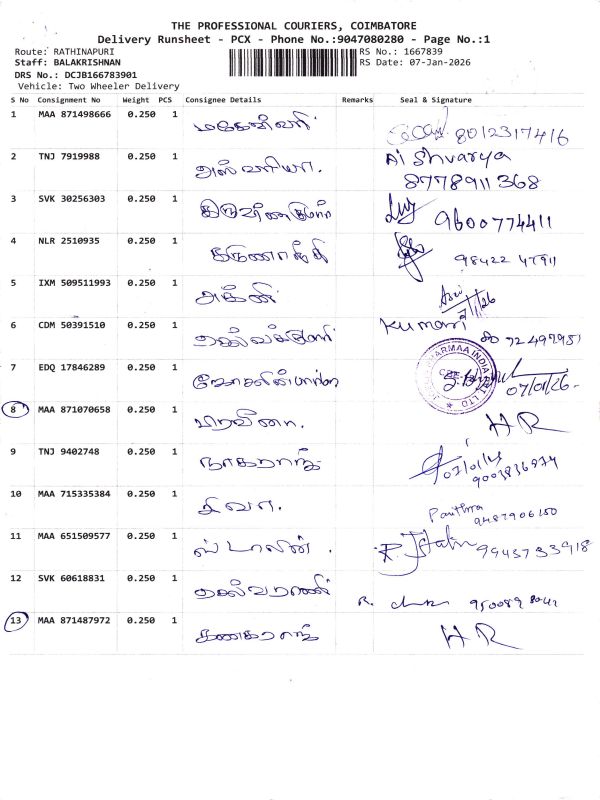 THE PROFESSIONAL COURIERS, COIMBATORE
Delivery Runsheet - PCX - Phone No.:9047080280 - Page No.:1
Route: RATHINAPURI RS No.: 1667839
Staff: BALAKRISHNAN RS Date: 07-Jan-2026
DRS No.: DCJB166783901
Vehicle: Two Wheeler Delivery
S No Consignment No Weight PCS Consignee Details Remarks Seal & Signature
1 MAA 871498666 0.250 1 மகேஸ்வரி 8012317416
2 TNJ 7919988 0.250 1 அஸ்வர்யா. Aishvarya
8778911368
3 SVK 30256303 0.250 1 9600774411
4 NLR 2510935 0.250 1 98422 47911
5 IXM 509511993 0.250 1 அக்னி
6 CDM 50391510 0.250 1 Kumari
7 EDQ 17846289 0.250 1 07/01/26-
8 MAA 871070658 0.250 1 பிரவீனா. HR
9 TNJ 9402748 0.250 1 நாகராஜ் 07/01/
10 MAA 715335384 0.250 1 சிவா. Pavithra
9487906150
11 MAA 651509577 0.250 1 ஸ்டாலின். 9943733918
12 SVK 60618831 0.250 1 செல்வராணி R.
13 MAA 871487972 0.250 1 கனகராஜ் HR